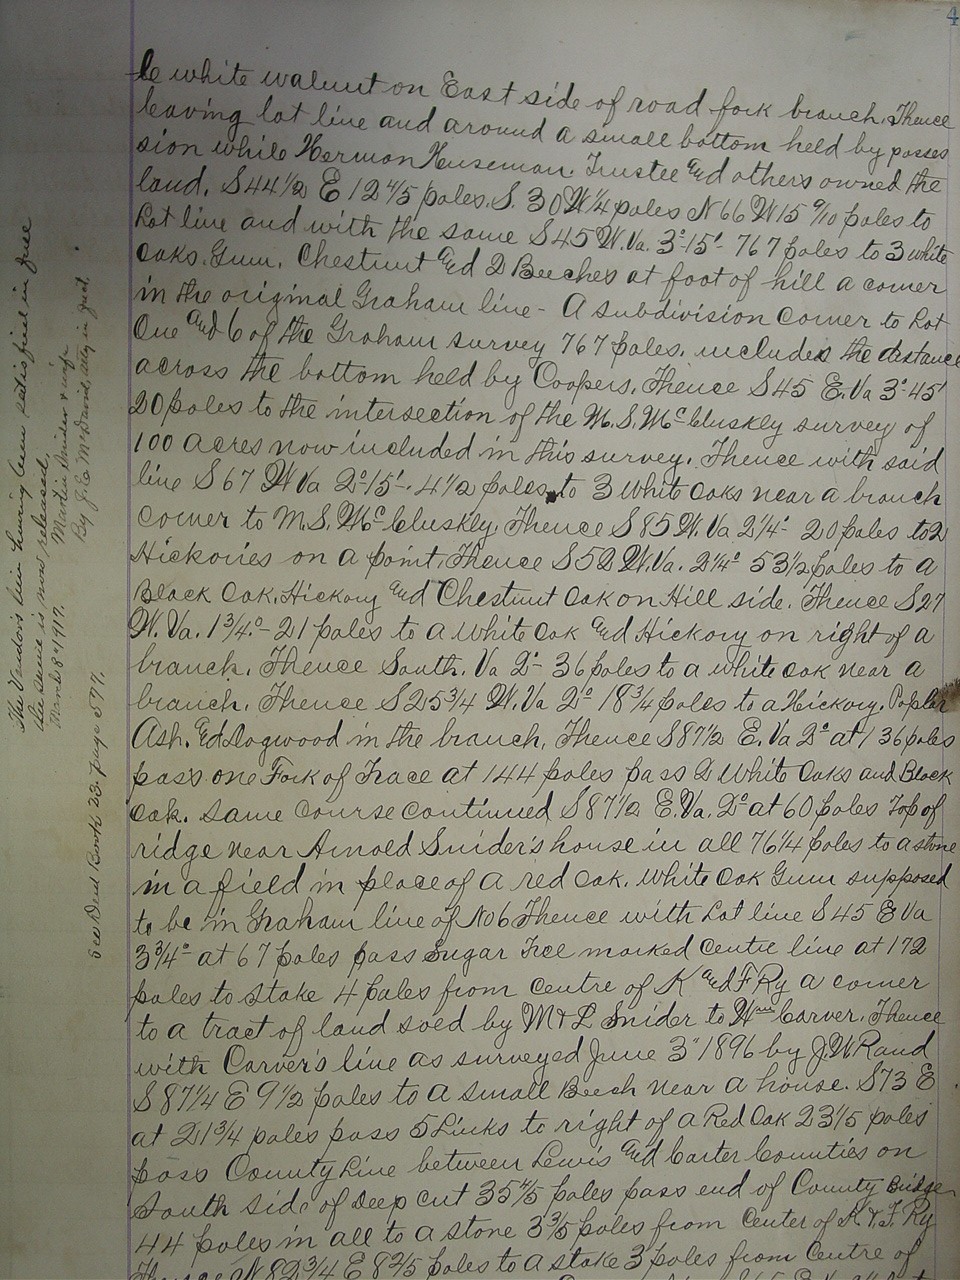 4
le white walnut on East side of road fork branch. Thence
leaving lot line and around a small bottom held by posses
sion while Herman Huseman. Trustee and others owned the
land. S 44 1/2 E 12 4/5 poles. S. 30 W 1/4 poles N 66 W 15 9/10 poles to
Lot line and with the same S 45 W. Va. 3°-15'- 767 poles to 3 white
oaks. Gum. Chestnut and 2 Beeches at foot of hill a corner
in the original Graham line - A subdivision corner to Lot
One and 6 of the Graham survey 767 poles. includes the distance
across the bottom held by Coopers. Thence S 45 E. Va 3°-45'
20 poles to the intersection of the M. S. McCluskly survey of
100 acres now included in this survey. Thence with said
line S 67 W Va 2°-15'-. 4 1/2 poles to 3 White oaks near a branch
corner to M. S. McCluskly. Thence S 85 W. Va 2 1/4°- 20 poles to 2
Hickories on a point. Thence S 52 W. Va. 2 1/4° 53 1/2 poles to a
Black Oak. Hickory and Chestnut Oak on Hill side. Thence S 27
W. Va. 1 3/4.°- 21 poles to a White Oak and Hickory on right of a
branch. Thence South. Va 2°- 36 poles to a white oak near a
branch. Thence S 25 3/4 W. Va 2° 18 3/4 poles to a Hickory. Poplar
Ash. and Dogwood in the branch. Thence S 87 1/2 E. Va 2° at 136 poles
pass one Fork of Trace at 144 poles pass 2 White Oaks and Black
Oak. Same course continued S 87 1/2 E. Va. 2° at 60 poles Top of
ridge near Arnold Snider's house in all 76 1/4 poles to a stone
in a field in place of a red oak. White Oak Gum supposed
to be in Graham line of No 6 Thence with Lot line S 45 E Va
3 3/4°- at 67 poles pass Sugar Tree marked centre line at 172
poles to Stake 4 poles from centre of K and F Ry a corner
to a tract of land soed by M & L Snider to Wm Carver. Thence
with Carver's line as surveyed June 3" 1896 by J. W Rand
S 87 1/4 E 9 1/2 poles to a small Beech near a house. S 73 E
at 21 3/4 poles pass 5 Links to right of a Red Oak 23 1/5 poles
pass County Line between Lewis and Carter Counties on
South side of deep cut 35 4/5 poles pass end of County Bridge
44 poles in all to a stone 3 3/5 poles from Center of K & F. Ry
Thence N 82 3/4 E 8 2/5 poles to a stake 3 poles from Centre of
The Vendor's lien having been satisfied in full
the same is now released.
March 8" 1917.
Martin Snider & wife
By J. C. McDavid, Atty in fact.
See Deed Book 23. page 577.